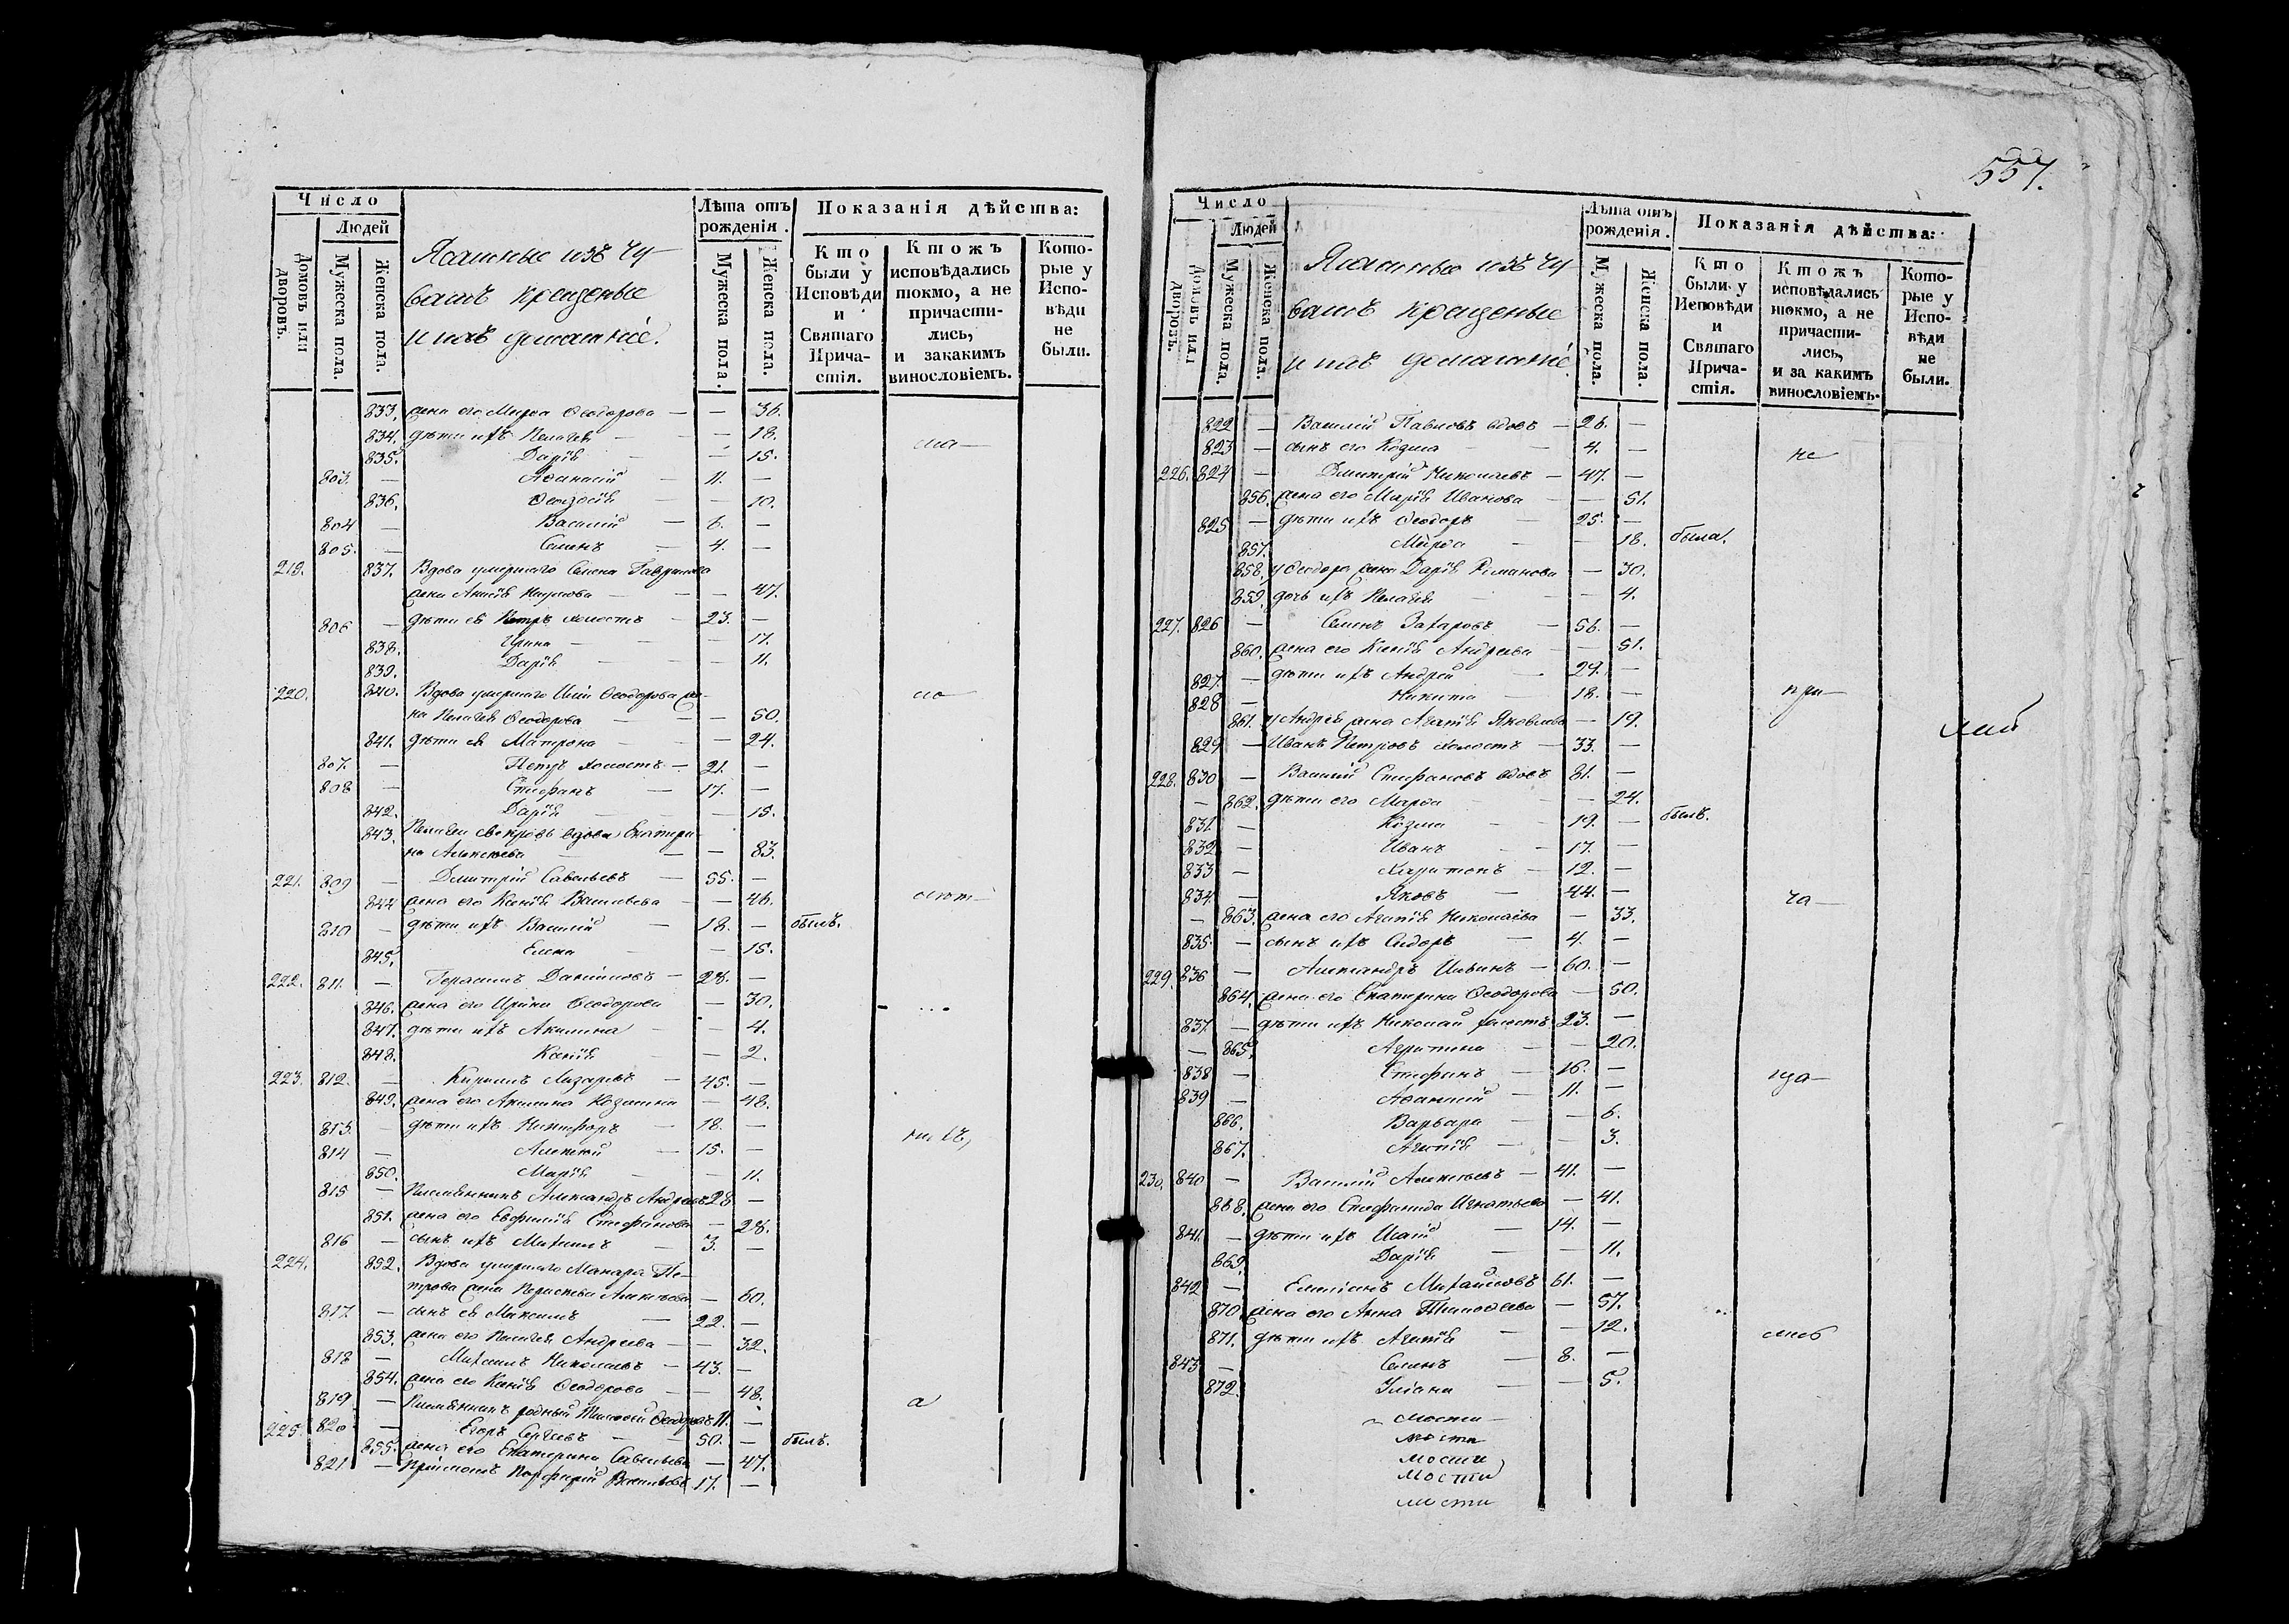 Число
Людей
Домовъ или дворовъ.
Мужеска пола.
Женска пола.
Ясашные изъ чу-
вашъ крещеные
и ихъ домашніе.
Лѣта отъ рожденія.
Мужеска пола.
Женска пола.
Показанія дѣйства:
Кто были у Исповѣди и Святаго Причастія.
Ктожъ исповѣдались токмо, а не причастились, и закакимъ винословіемъ.
Которые у Исповѣди не были.
833. жена его Марѳа Ѳеодорова — — 36.
834. дѣти ихъ Пелагея — — 18.
835. Дарія — — 15.
803. — Аѳанасій — 11. —
836. Ѳеодосія — — 10.
804 — Василій — 6. —
805. — Семенъ — 4. —
219. 837. Вдова умершаго Семена Гаврилова
жена Анна — — 47.
806 — дѣти ея Петръ холостъ — 23. —
838. Ирина — — 17.
839. Дарія — — 11.
220. 840. Вдова умершаго Ѳеодорова же-
на Пелагея Ѳеодорова — — 50.
841. дѣти ея Матрона — — 24.
807. — Петръ холостъ — 21. —
808 — Стефанъ — 17. —
842. Дарія — — 15.
843. Пелагеи свекровь вдова Екатери-
на Алексеева — — 83.
221. 809 — Дмитрій Савельевъ — 55. —
844 жена его Ксенія Васильева — — 46.
810 — дѣти ихъ Василій — 18. — былъ.
845. Елена — — 15.
222. 811. — Герасимъ Даниловъ — 28. —
846. жена его Ирина Ѳеодорова — 30.
847. дѣти ихъ Акилина — — 4.
848. Ксенія — — 2.
223. 812. — Кирилъ Лазаревъ — 45. —
849. жена его Акилина Козмина — 48.
813. — дѣти ихъ Никифоръ — 18. —
814 — Алексей — 15. —
850. Марія — — 11.
815 — Племянникъ Александръ Андреевъ 28 —
851. жена его Евфимія Стефанова — 28.
816 — сынъ ихъ Михаилъ — 3. —
224. 852. Вдова умершаго Макара Пе-
трова жена Алексеева — 60.
817 — сынъ ея Максимъ — 22. —
853. жена его Пелагея Андреева — — 32.
818 — Михаилъ Николаевъ — 43. —
854. жена его Ксенія Ѳеодорова — — 48.
819. — Племянникъ родный Тимоѳей Ѳеодоровъ 11. —
225. 820 — Егоръ Сергеевъ — 50. — былъ.
855. жена его Екатерина Савельева — 47.
821 — Пріимышъ Порфирій Васильевъ 17. —
557.
Число
Людей
Домовъ или дворовъ.
Мужеска пола.
Женска пола.
Ясашные изъ чу-
вашъ крещеные
и ихъ домашніе
Лѣта отъ рожденія.
Мужеска пола.
Женска пола.
Показанія дѣйства:
Кто были у Исповѣди и Святаго Причастія.
Ктожъ исповѣдались токмо, а не причастились, и за какимъ винословіемъ.
Которые у Исповѣди не были.
822 — Василій Павловъ вдовъ — 26. —
823 — сынъ его Козма — 4. — не
226. 824 — Дмитрій Николаевъ — 47. —
856. жена его Марія Иванова — — 51.
825 — дѣти ихъ Ѳеодоръ — 25. —
857. Марѳа — — 18. была.
858. у Ѳеодора жена Дарія Романова — 30.
859. дочь ихъ Пелагея — — 4.
227. 826 — Семенъ Захаровъ — 56. —
860. жена его Ксенія Андреева — — 51.
827. — дѣти ихъ Андрей — 24. —
828 — Никита — 18. — при—
861. у Андрея жена Агапія Яковлева — 19.
829 — Иванъ Петровъ холостъ — 33. —
228. 830 — Василій Стефановъ вдовъ 81. —
— 862. дѣти его Марѳа — — 24.
831. — Козма — 19. — былъ.
832 — Иванъ — 17. —
833 — Харитонъ — 12. —
834. — Яковъ — 44. — ча—
— 863. жена его Агапія Николаева — 33.
835. — сынъ ихъ Сидоръ — 4. —
229. 836 — Александръ Ильинъ — 60. —
864. жена его Екатерина Ѳеодорова — 50.
837. — дѣти ихъ Николай холостъ 23. —
— 865. — — 20.
838 — Стефанъ — 16. — ща—
839 — Аѳанасій — 11. —
866. Варвара — — 6.
867. Агапія — — 3.
230. 840 — Василій Алексеевъ — 41. —
868. жена его Стефанида Игнатьева — 41.
841. — дѣти ихъ Исай — 14. —
869. Дарія — — 11.
842 — Емеліанъ Михайловъ 61. —
870 жена его Анна Тимоѳеева — 57.
871. дѣти ихъ Агапія — — 12.
843 — Семенъ — 8. —
872. Уліана — — 5.
мости
мости
мости
мости
мости